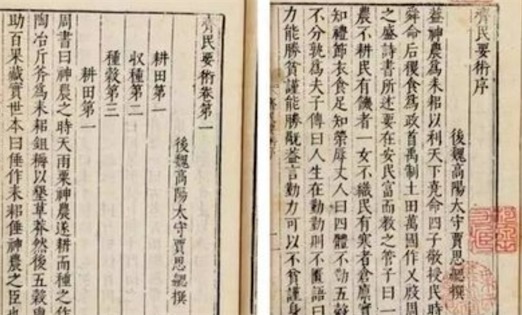 齊民要術序
後魏髙陽太守賈思勰撰
蓋神農爲耒耜以利天下堯命四子敬授民時
舜命后稷食爲政首禹制土田萬國作乂殷周
之盛詩書所述要在安民富而教之管子曰一
農不耕民有饑者一女不織民有寒者倉廩實
知禮節衣食足知榮辱丈人曰四體不勤五穀
不分孰爲夫子傳曰人生在勤勤則不匱語曰
力能勝貧謹能勝禍蓋言勤力可以不貧謹身
齊民要術卷第一
後魏髙陽太守賈思勰撰
耕田第一
收種第二
種穀第三
耕田第一
周書曰神農之時天雨粟神農遂耕而種之作
陶冶斤斧爲耒耜鉏耨以墾草莽然後五穀
助百果藏實世本曰倕作耒耜倕神農之臣也